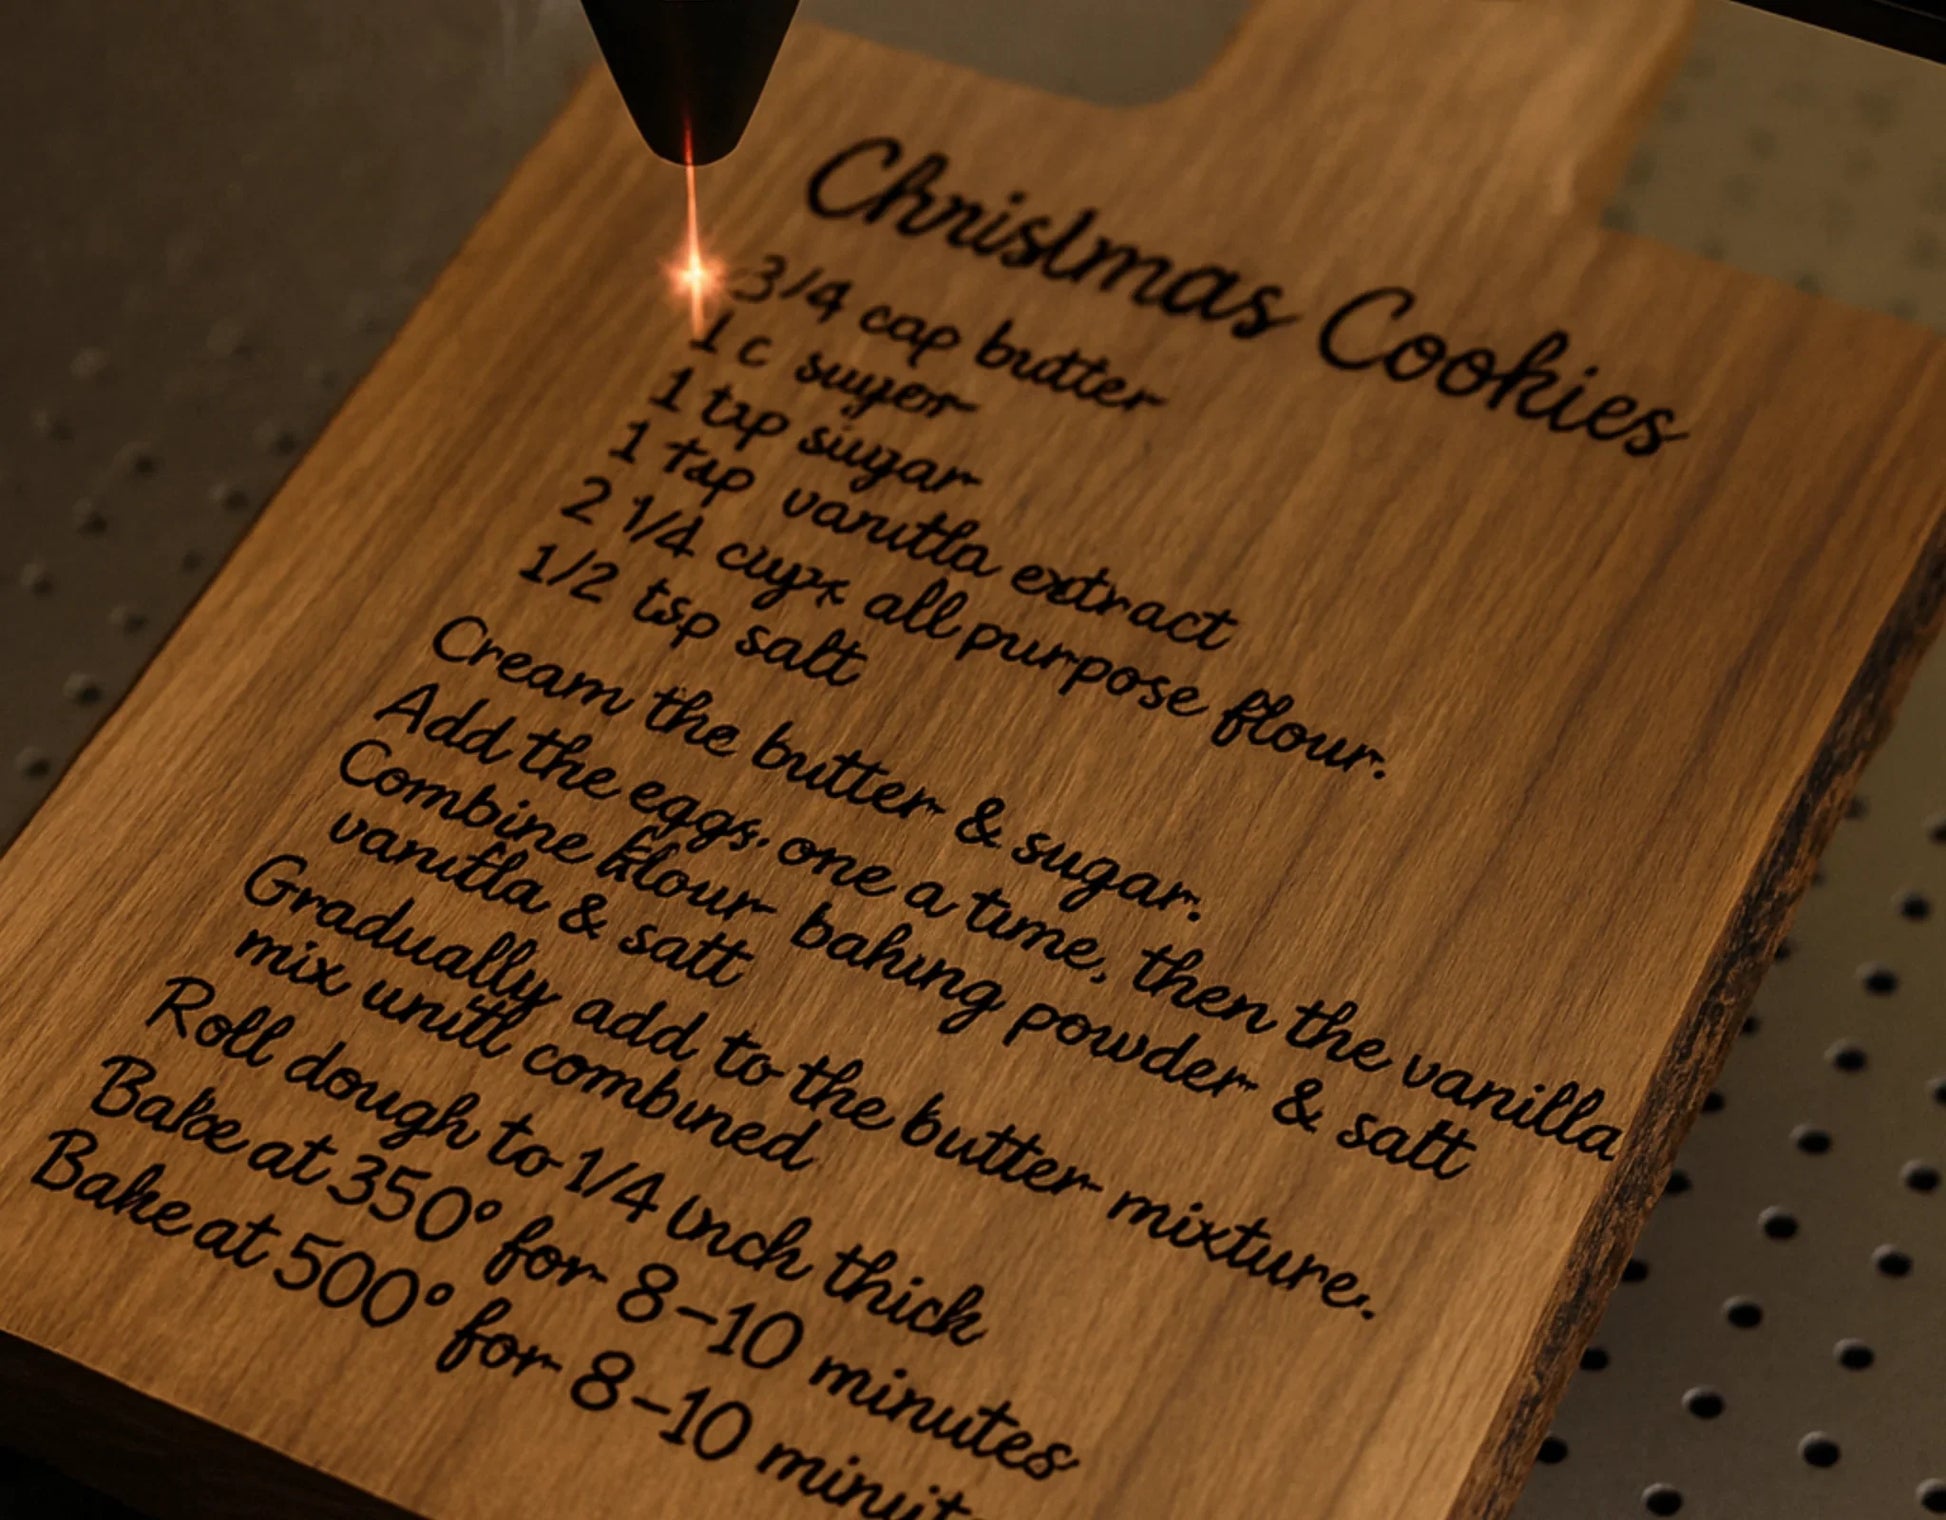 Christmas Cookies
3/4 cap butter
1 c suger
1 tsp siugar
1 tsp vanitla extract
2 1/4 cups all purpose flour.
1/2 tsp salt
Cream the butter & sugar.
Add the eggs, one a time, then the vanilla
Combine flour baking powder & satt
vanitla & satt
Gradually add to the butter mixture.
mix unitl combined
Roll dough to 1/4 inch thick
Bake at 350° for 8-10 minutes
Bake at 500° for 8-10 minuit